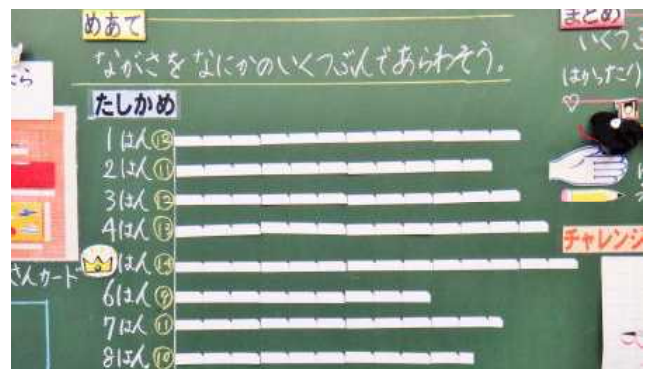 めあて
ながさをなにかのいくつぶんであらわそう。
たしかめ
1はん⑫
2はん⑪
3はん⑫
4はん⑬
はん⑭
6はん⑨
7はん⑪
8はん⑩
さんカード
まとめ
いくつ
チャレンジ